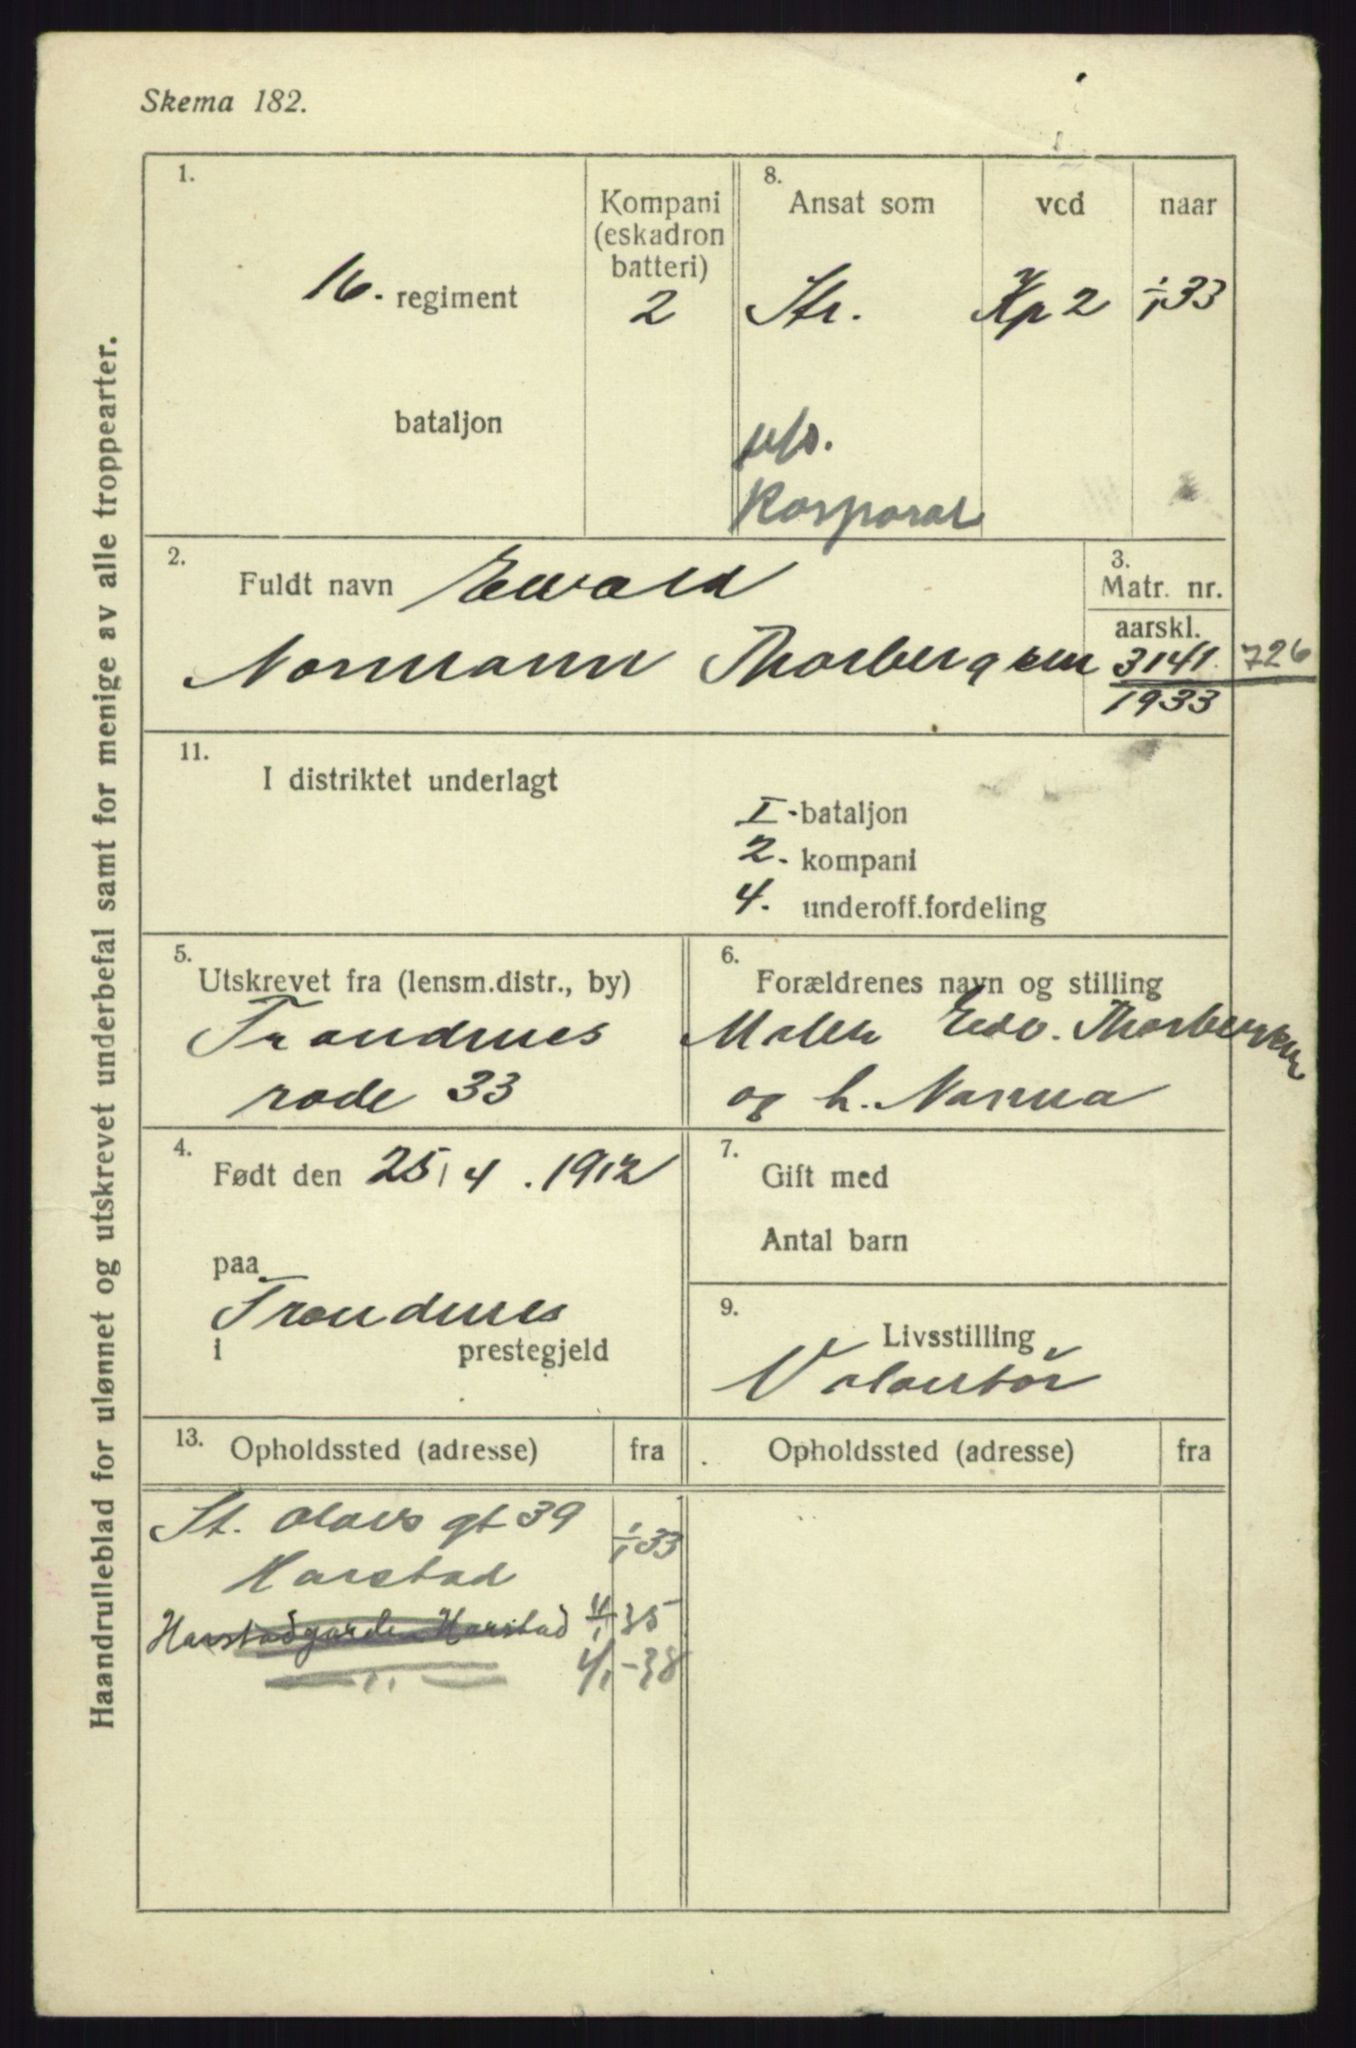 Skema 182.
Haandrulleblad for ulønnet og utskrevet underbefal samt for menige av alle troppearter.
1.
16. regiment
bataljon
Kompani
(eskadron
batteri)
2
8.
Ansat som
ved
naar
Str.
Kp 2
1/1 33
Korporal
2.
Fuldt navn Ewald
Normann Thorbergsen
3.
Matr. nr.
aarskl.
3141 726
1933
11.
I distriktet underlagt
I. bataljon
2. kompani
4. underoff.fordeling
5.
Utskrevet fra (lensm.distr., by)
Trondenes
rode 33
6.
Forældrenes navn og stilling
Edv. Thorbergsen
og h. Nanna
4.
Født den 25/4. 1912
paa
Trondenes
i prestegjeld
7.
Gift med
Antal barn
9.
Livsstilling
Volontør
13.
Opholdssted (adresse)
fra
Opholdssted (adresse)
fra
St. Olavs gt 39
1/1 33
Harstad
Harstadgården Harstad 4/1 35
4/1 - 38